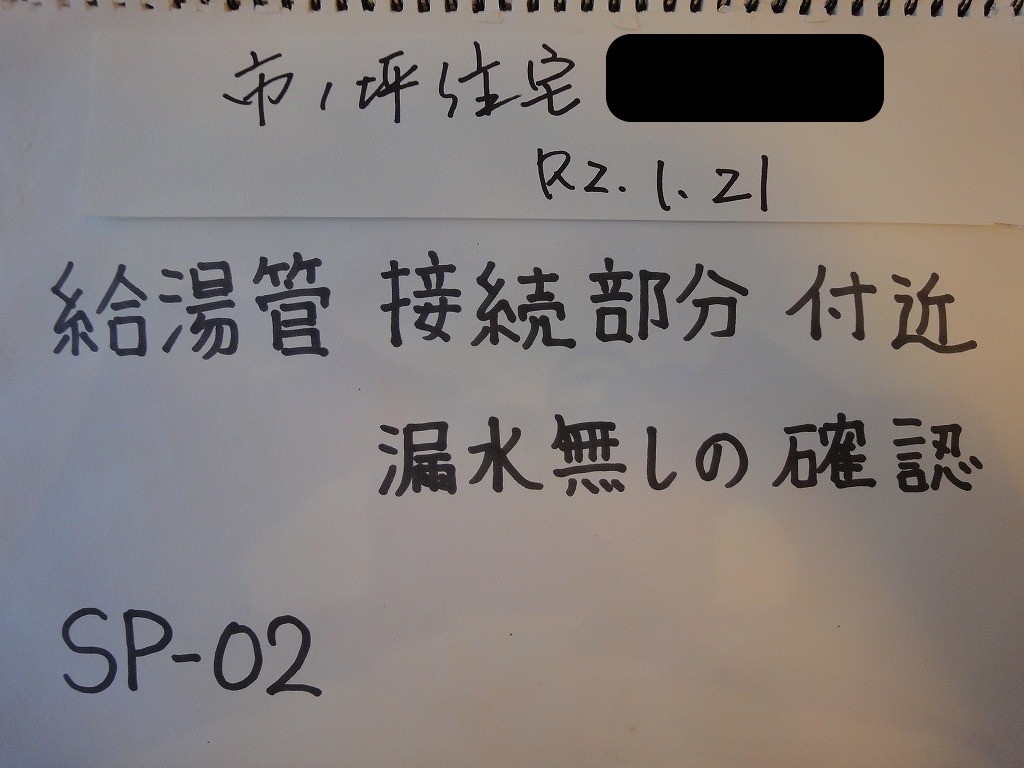 市ノ坪住宅
R2.1.21
給湯管 接続部分 付近
漏水無しの確認
SP-02